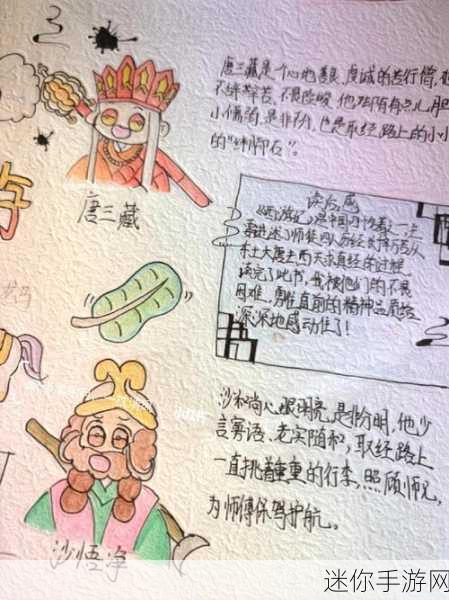 唐三藏是一个心地善良、虔诚的苦行僧,
不辞辛苦、不畏险峻,他却有点儿胆
小懦弱,是非不分,也是取经路上的小小
的"绊脚石"。
唐三藏
读后感
《西游记》是中国四大名著之一,主
要讲述了师徒四人历经
东土大唐去西天求真经的过程。
读完了此书,我被他们的不畏
困难、勇往直前的精神品质给
深深地感动住了!
沙和尚心眼明亮,是非分明,他少
言寡语、老实随和,取经路上
一直挑着重重的行李,照顾师兄,
为师傅保驾护航。
沙悟净
迷你手游网